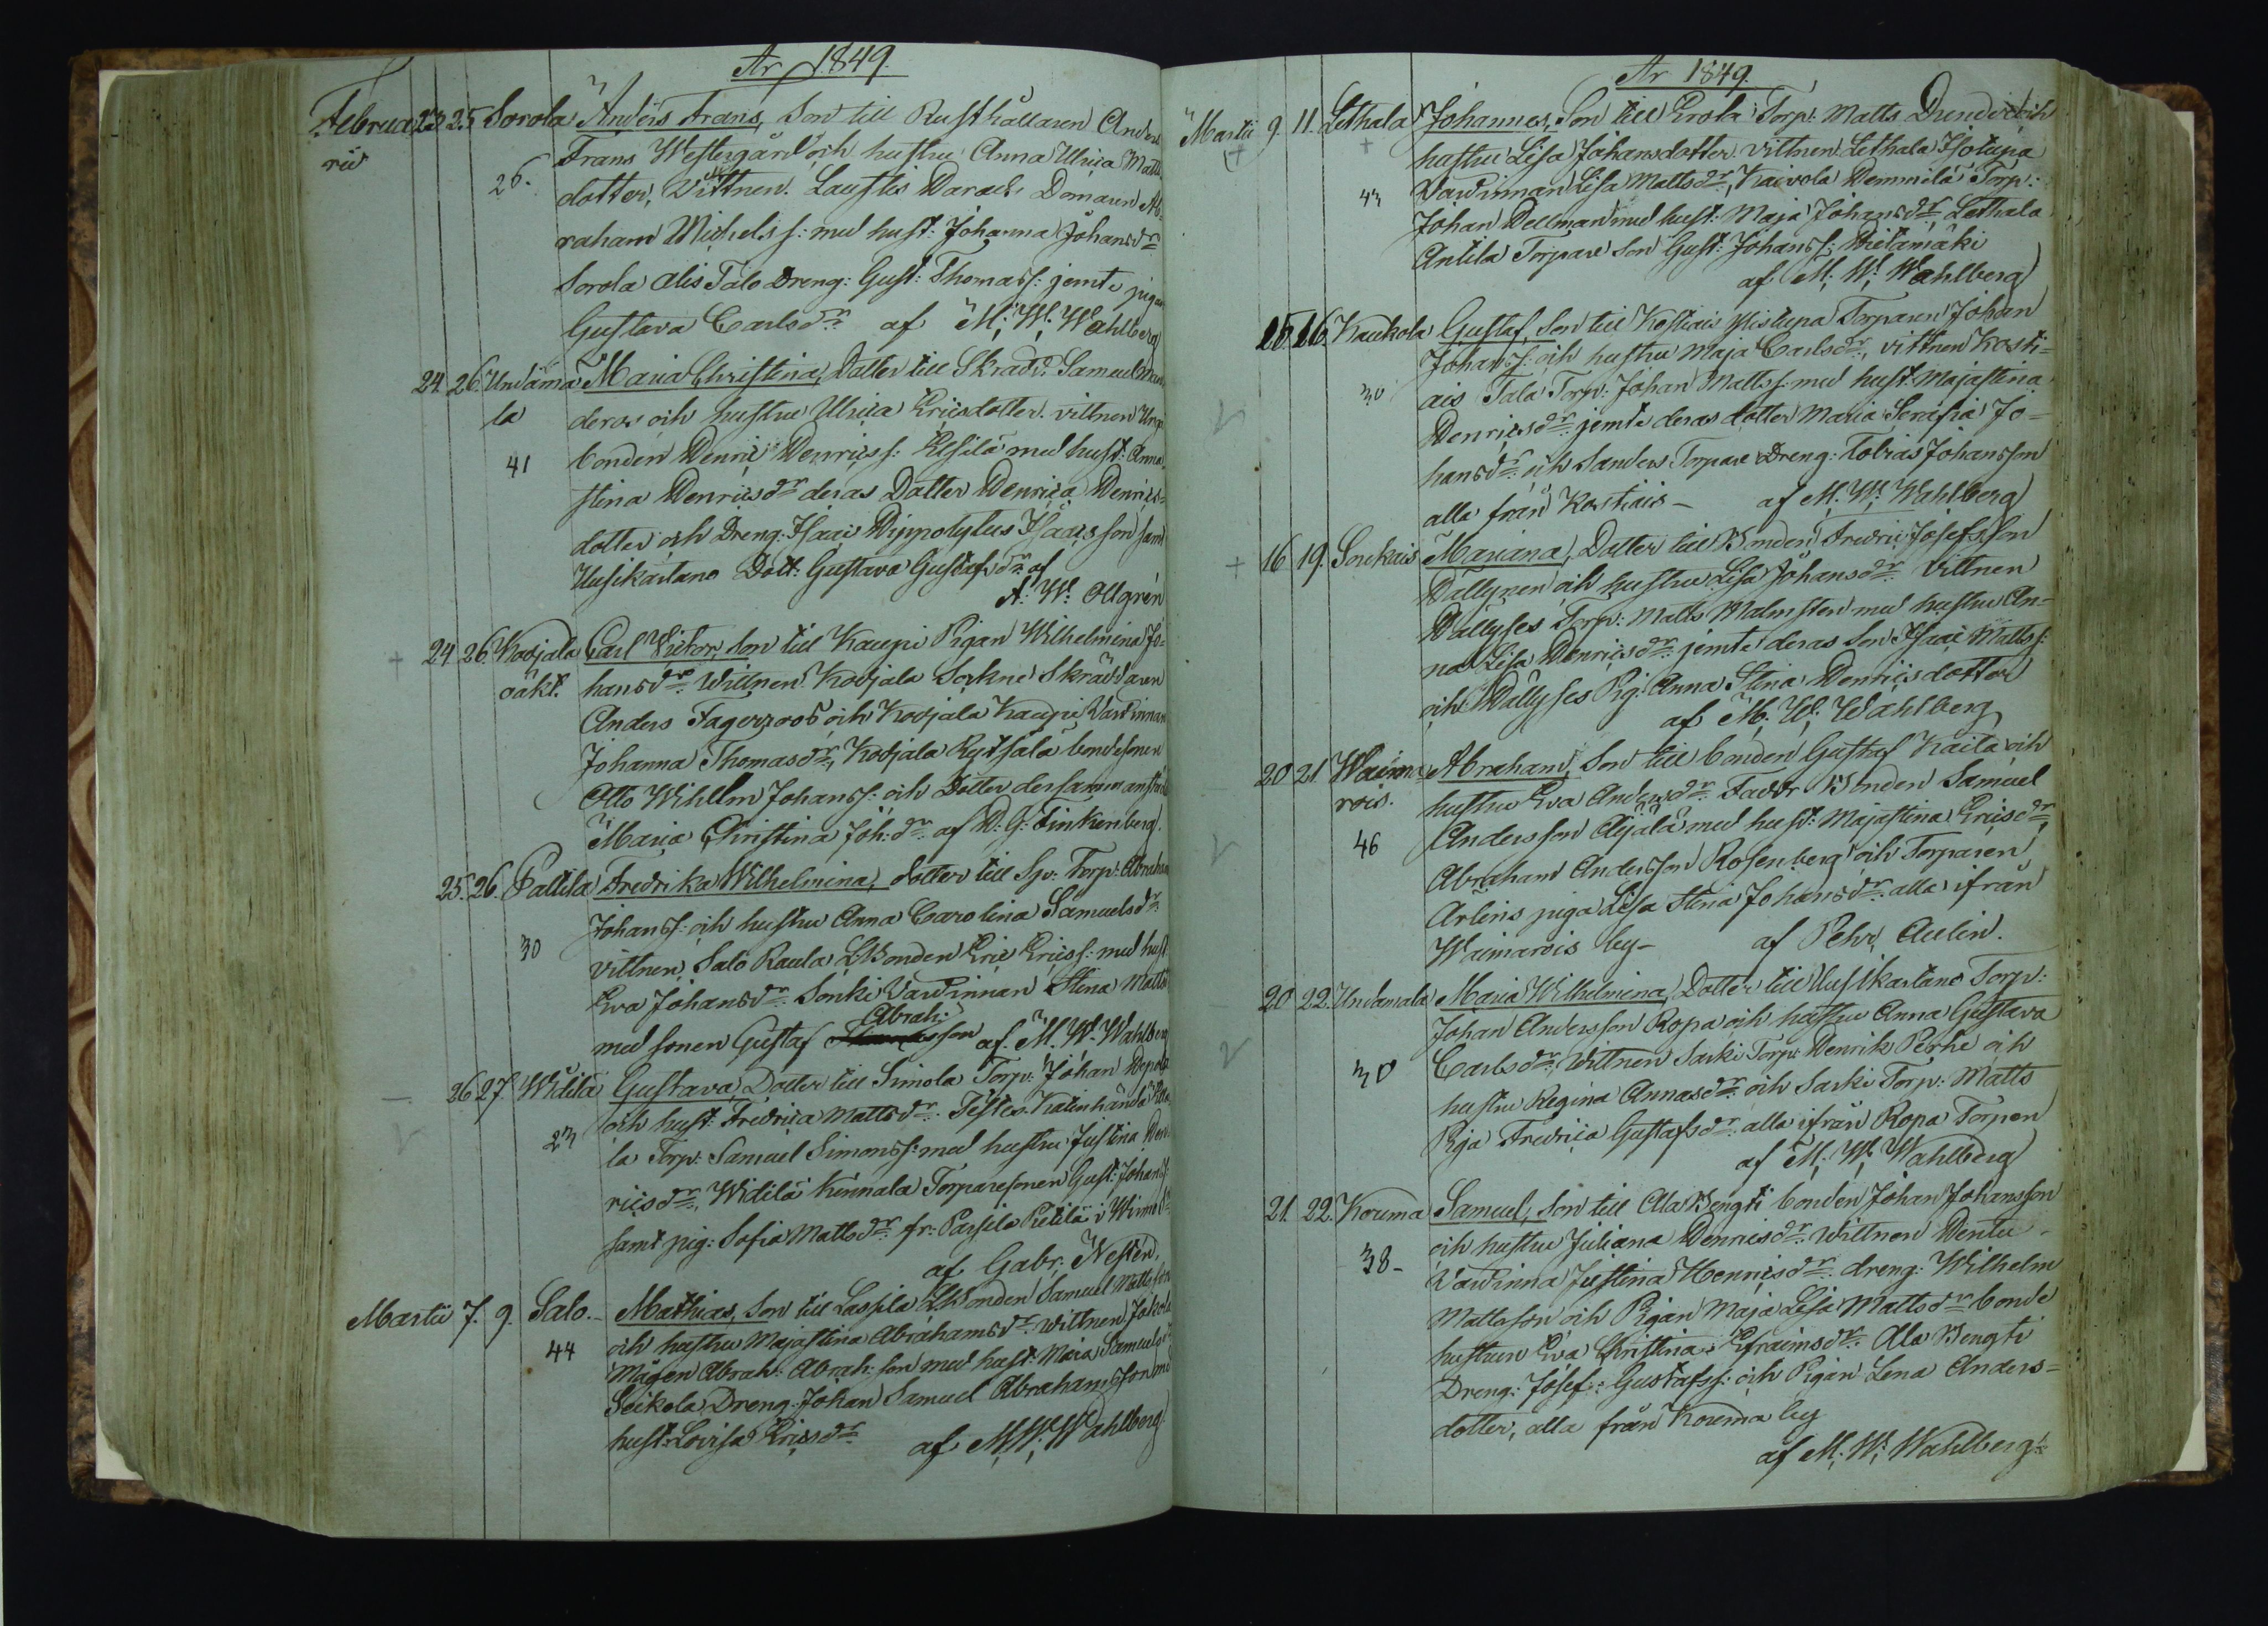 År 1849.
Februa 23 25 Sorola Anders Frans, Son till Rusthållaren Anders
rii Frans Westergård och hustru Anna Ulrica Matts
26. dotter, Vittnen. Laustis Domaren Ab
raham Michelss: med hust: Johanna Johansdr
Sorola Alis Talo Dreng: Gust: Thomass: jemte pigan
Gustava Carlsdr af M: W: Wahlberg
24 26. Undama Maria Christina, Dotter till Skradd: Samuel
la deros och hustru Ulrica Ericsdotter. vittnen
41 bonden Henric Henricss: Elsilä med hust: Anna
stina Henricsdr deras Dotter Henrica Henrics=
dotter och Dreng: Isaac Hippolytus Isaacsson samt
Uusikartano Dott: Gustava Gustafsdr af
A: W: Ollgrén
+ 24 26. Kodjala Carl Victor, son till Kaupi Pigan Wilhelmina Jo=
oäkt. hansdr Wittnen. Kodjala Sockne Skräddaren
Anders Fagerroos och Kodjala Kaupi Värdinnan
Johanna Thomasdr, Kodjala Rytsälä bondesonen
Otto Wihellm Johanss: och Dotter dersammanstädes
Maria Christina Joh:dr af D: G: Finkenberg.
25. 26. Pattila Fredrika Wilhelmina, dotter till Sp: Torp: Abraham
Johanss: och hustru Anna Carolina Samuelsdr
30 vittnen, Salo Raula LBonden Eric Ericss: med hust
Eva Johansdr. Sonki Värdinnan Stina Matts
Abrah:
med sonen Gustaf son af M. W. Wahlberg
26 27. Widilä Gustava, Dotter till Simola Torp: Johan
och hust: Fredrica Mattsdr. Testes. Katinhända
23 la Torp: Samuel Simonss: med hustru Justina Hen
ricsdr, Widilä Kinnala Torparesonen Gust: Johanss:
samt pig: Sofia Mattsdr fr: Passila Pietilä i
af Gabr: Nestén,
Martii 7. 9. Salo.- Mathias, Son till Laspla LBonden Samuel Mattsson
44 och hustru Majastina Abrahamsdr. wittnen Jakola
Mågen Abrah: Abrah:son med hust: Maia Samuelsdr
Seikola Dreng Johan Samuel Abrahamsson med
hust: Lovisa Ericsdr af M: W: Wahlberg
År 1849.
Martii 9. 11. Lethala Johannes, Son till Erola Torp: Matts och
+ hustru Lisa Johansdotter. vittnen. Lethala Isotupa
43 Värdinnan Lisa Mattsdr, Kaivola Hemmilä Torp:
Johan Hellman med hust: Maja Johansdr Lethala
Antila Torpare son Gust: Johanss: Mietämäki
af M: W: Wahlberg
15. 16. Kaukola Gustaf, Son till Kostiais Torparen Johan
Johanss: och hustru Maja Carlsdr, vittnen Kosti=
30 ais Tala Torp: Johan Mattss: med hust: Majastina
Henricsdr: jemte deras dotter Maria Serafia Jo=
hansdr och Sanders Torpare Dreng: Tobias Johansson
alla från Kostiais - af M. W: Wahlberg
+ 16 19. Soukais Mariana, Dotter till Bonden Fredric Josefsson
Dällynen och hustru Lisa Johansdr: Vittnen
Dällyses Torp: Matts Malmsten med hustru An=
na Lisa Henricsdr: jemte deras Son Isaac Mattss:
och Dällyses Pig: Anna Stina Henricsdotter
af M. W. Wahlberg
20 21 Waima Abraham, Son till bonden Gustaf Kaila och
rois. hustru Eva Andersdr: Faddr Bonden Samuel
46 Andersson Äijälä med hust: Majastina Ericsdr,
Abraham Andersson Rosenberg och Torparen
Arlins piga Lisa Stina Johansdr alla ifrån
Waimarois by- af Pehr Aulin.
20 22. Undamala Maria Wilhelmina, Dotter till Uusikartano Torp:
Johan Andersson Ropa och hustru Anna Gustava
30 Carlsdr, Wittnen Sarki Torp: Henrik Perhe och
hustru Regina Annasdr: och Sarki Torp: Matts
Pija Fredrica Gustafsdr: alla ifrån Ropa Torpen
af M. W. Wahlberg
21. 22. Kouma Samuel, Son till Ala Bengti bonden Johan Johansson
och hustru Juliana Henricsdr: Wittnen Hentu
38- Värdinna Justina Henricsdr: dreng: Wilhelm
Mattsson och Pigan Maja Lisa Mattsdr bonde
hustrun Eva Christina Efraimsdr: Ala Bengti
Dreng: Josef: Gustafss: och Pigan Lena Anders=
dotter, alla från Kouma by
af M: W: Wahlberg: